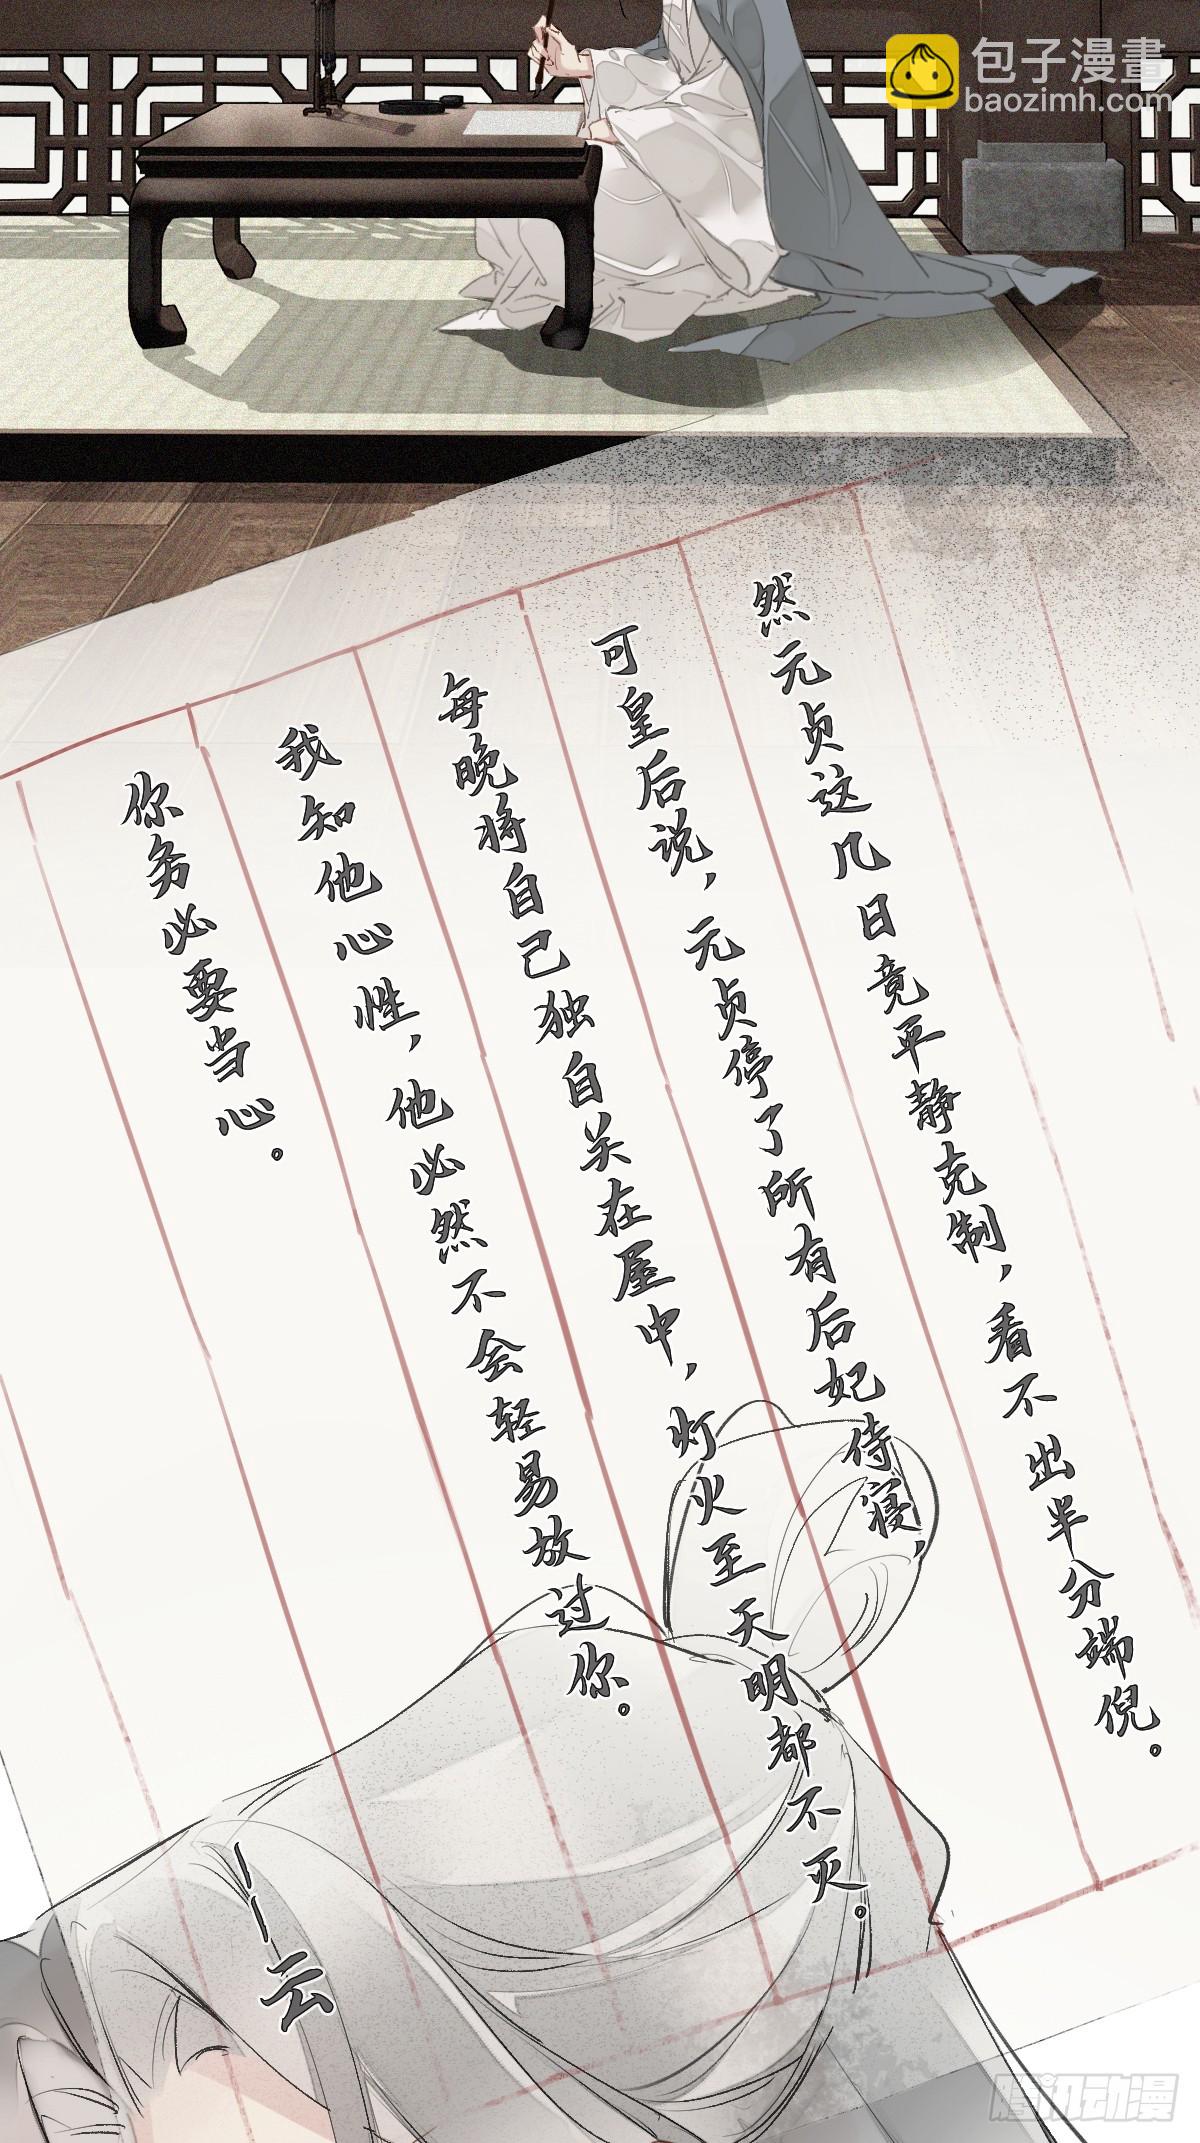 包子漫畫
baozimh.com
然元贞这几日竟平静克制，看不出半分端倪。
可皇后说，元贞停了所有后妃侍寝，
每晚将自己独自关在屋中，灯火至天明都不灭。
我知他心性，他必然不会轻易放过你。
你务必要当心。
——云
腾讯动漫